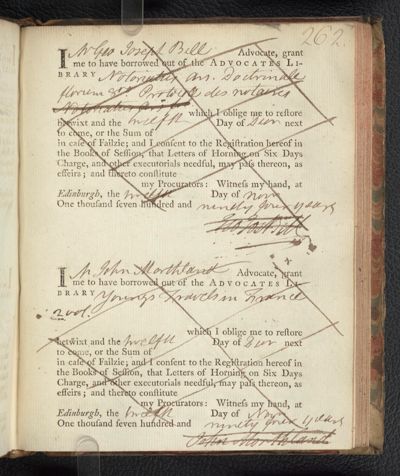 262.
I Mr Geo Joseph Bell Advocate, grant
me to have borrowed out of the ADVOCATES LI-
BRARY Notariatus ars. Doctrinale
florum &c. Protocol des notaires
which I oblige me to reſtore
betwixt and the twelfth Day of Decr next
to come, or the Sum of
in caſe of Failzie; and I conſent to the Regiſtration hereof in
the Books of Seſſion, that Letters of Horning on Six Days
Charge, and other executorials needful, may paſs thereon, as
effeirs; and thereto conſtitute
my Procurators: Witneſs my hand, at
Edinburgh, the twelfth Day of Novr
One thouſand ſeven hundred and ninety four years
Geo Jos Bell
I Mr John Morthland Advocate, grant
me to have borrowed out of the ADVOCATES LI-
BRARY Youngs Travels in France
2 vol.
which I oblige me to reſtore
betwixt and the twelfth Day of Decr next
to come, or the Sum of
in caſe of Failzie; and I conſent to the Regiſtration hereof in
the Books of Seſſion, that Letters of Horning on Six Days
Charge, and other executorials needful, may paſs thereon, as
effeirs; and thereto conſtitute
my Procurators: Witneſs my hand, at
Edinburgh, the twelfth Day of Novr
One thouſand ſeven hundred and ninety four years
John Morthland